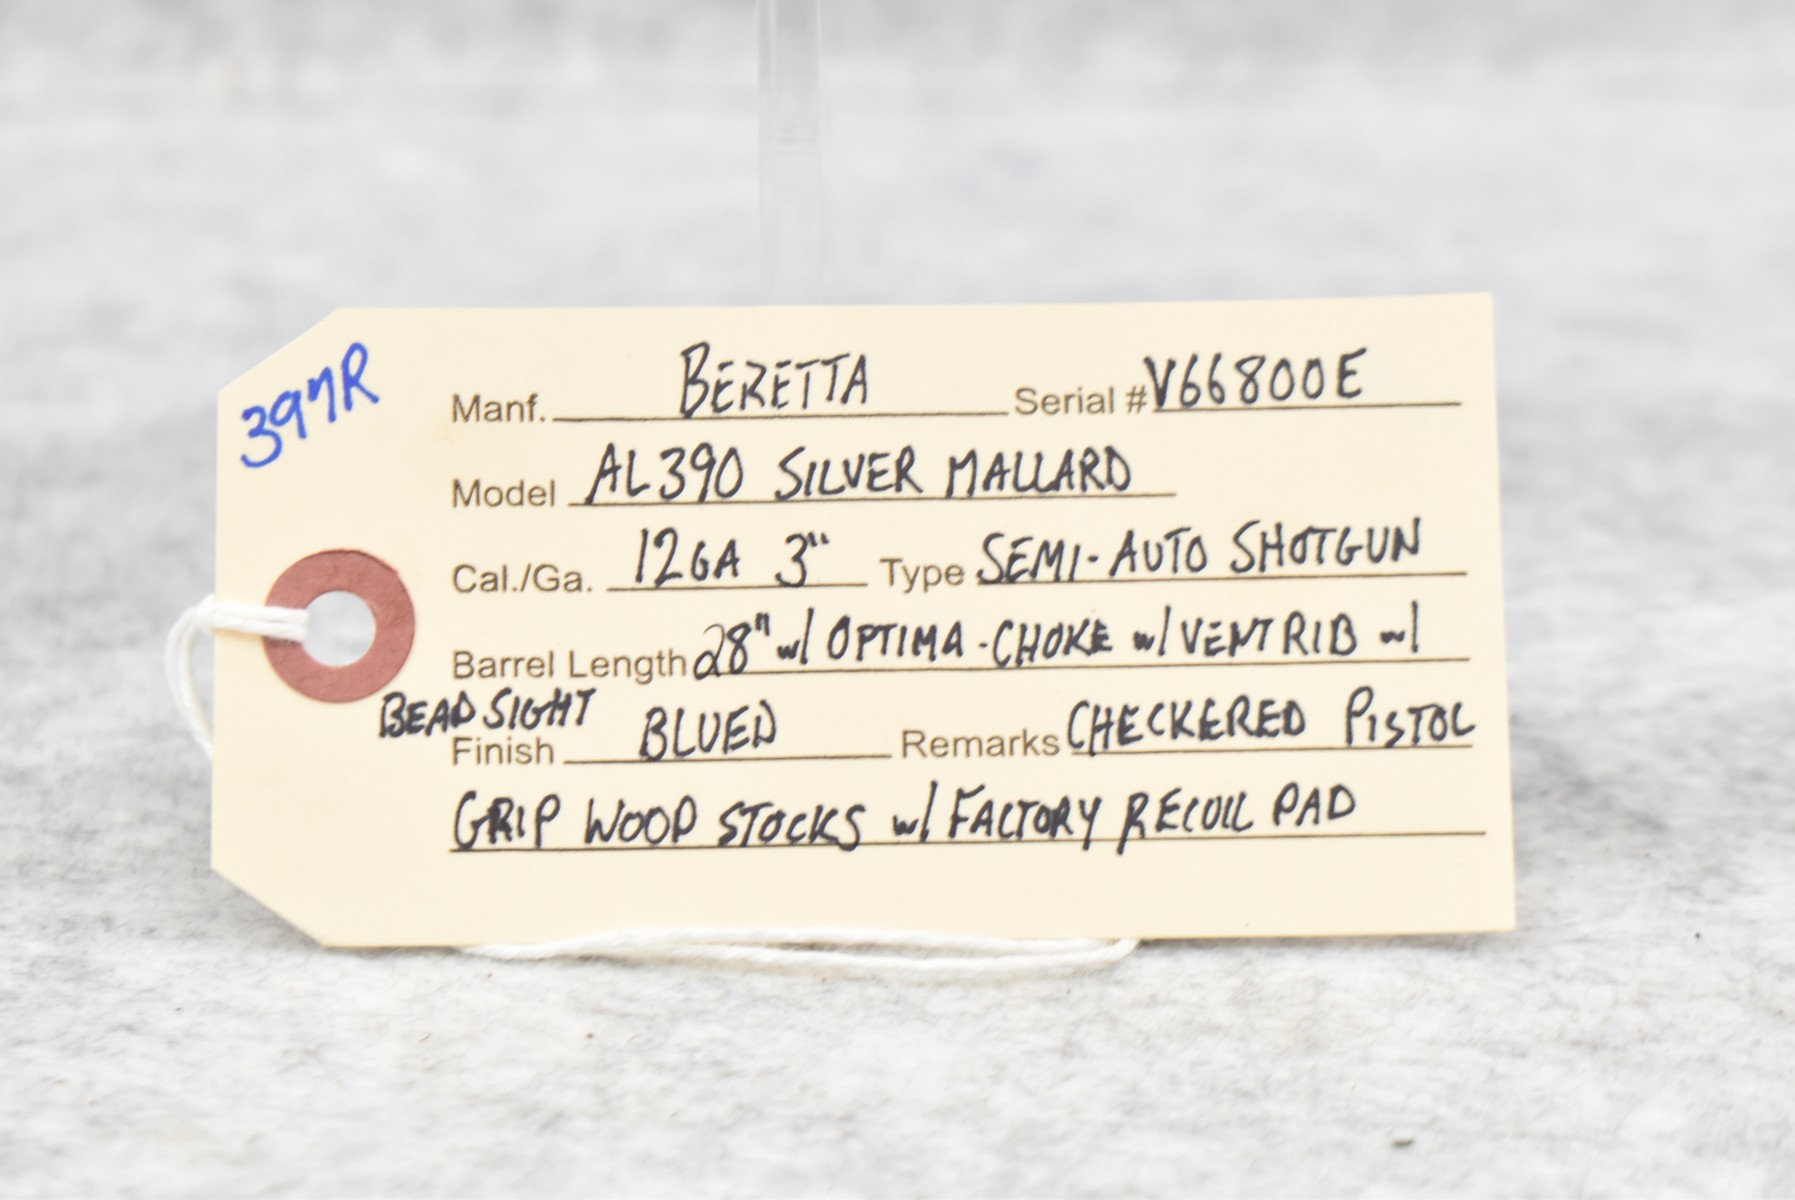 397R
Manf. BERETTA Serial # V66800E
Model AL390 SILVER MALLARD
Cal./Ga. 12GA 3" Type SEMI-AUTO SHOTGUN
Barrel Length 28" w/ OPTIMA-CHOKE w/ VENT RIB w/
BEAD SIGHT
Finish BLUED Remarks CHECKERED PISTOL
GRIP WOOD STOCKS w/ FACTORY RECOIL PAD